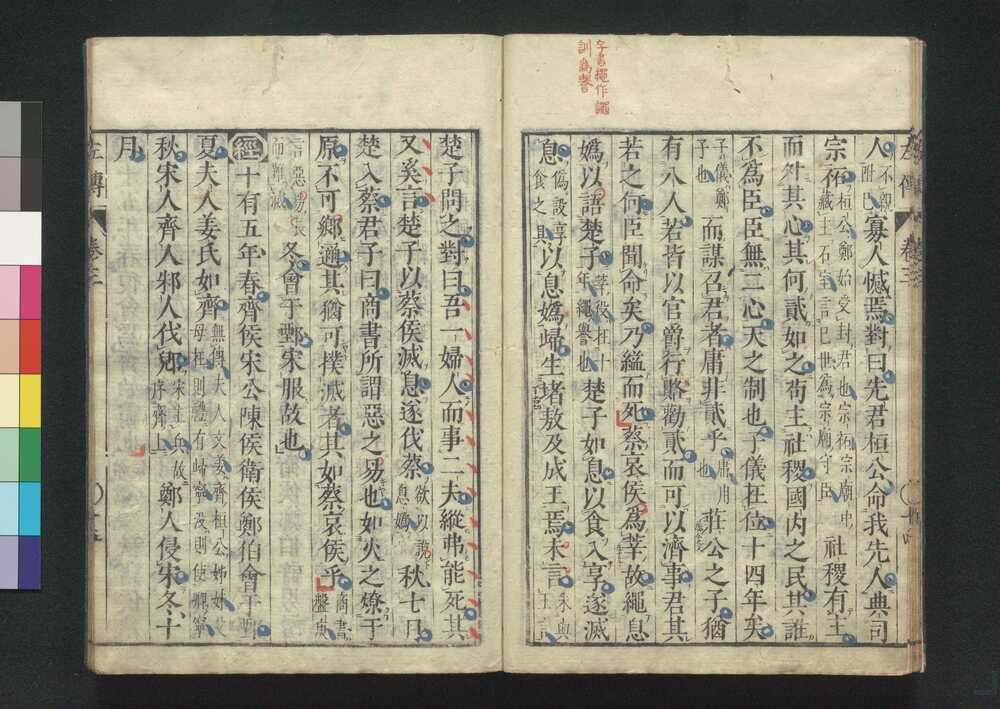 字書繩作譝
訓為譽
人不親附己寡人憾焉對曰先君桓公命我先人典司
宗祏桓公鄭始受封君也宗祏宗廟中藏主石室言己世爲宗廟守臣社稷有主
而外其心其何貳如之苟主社稷國內之民其誰
不爲臣臣無二心天之制也子儀在位十四年矣
子儀鄭子也而謀召君者庸非貳乎庸用也莊公之子猶
有八人若皆以官爵行賂勸貳而可以濟事君其
若之何臣聞命矣乃縊而死蔡哀侯爲莘故繩息
嬀以語楚子莘役在十年繩譽也楚子如息以食入享遂滅
息僞設享食之具以息嬀歸生堵敖及成王焉未言未與王言
楚子問之對曰吾一婦人而事二夫縱弗能死其
又奚言楚子以蔡侯滅息遂伐蔡欲以說息嬀秋七月
楚入蔡君子曰商書所謂惡之易也如火之燎于
原不可鄉邇其猶可撲滅者其如蔡哀侯乎商書盤庚
言惡易長而難滅冬會于鄄宋服故也
經十有五年春齊侯宋公陳侯衛侯鄭伯會于鄄
夏夫人姜氏如齊無傳夫人文姜齊桓公姊妹父母在則禮有歸寧沒則使卿寧
秋宋人齊人邾人伐郳宋主兵故序齊上鄭人侵宋冬十
月
左傳
卷三
左傳
卷三